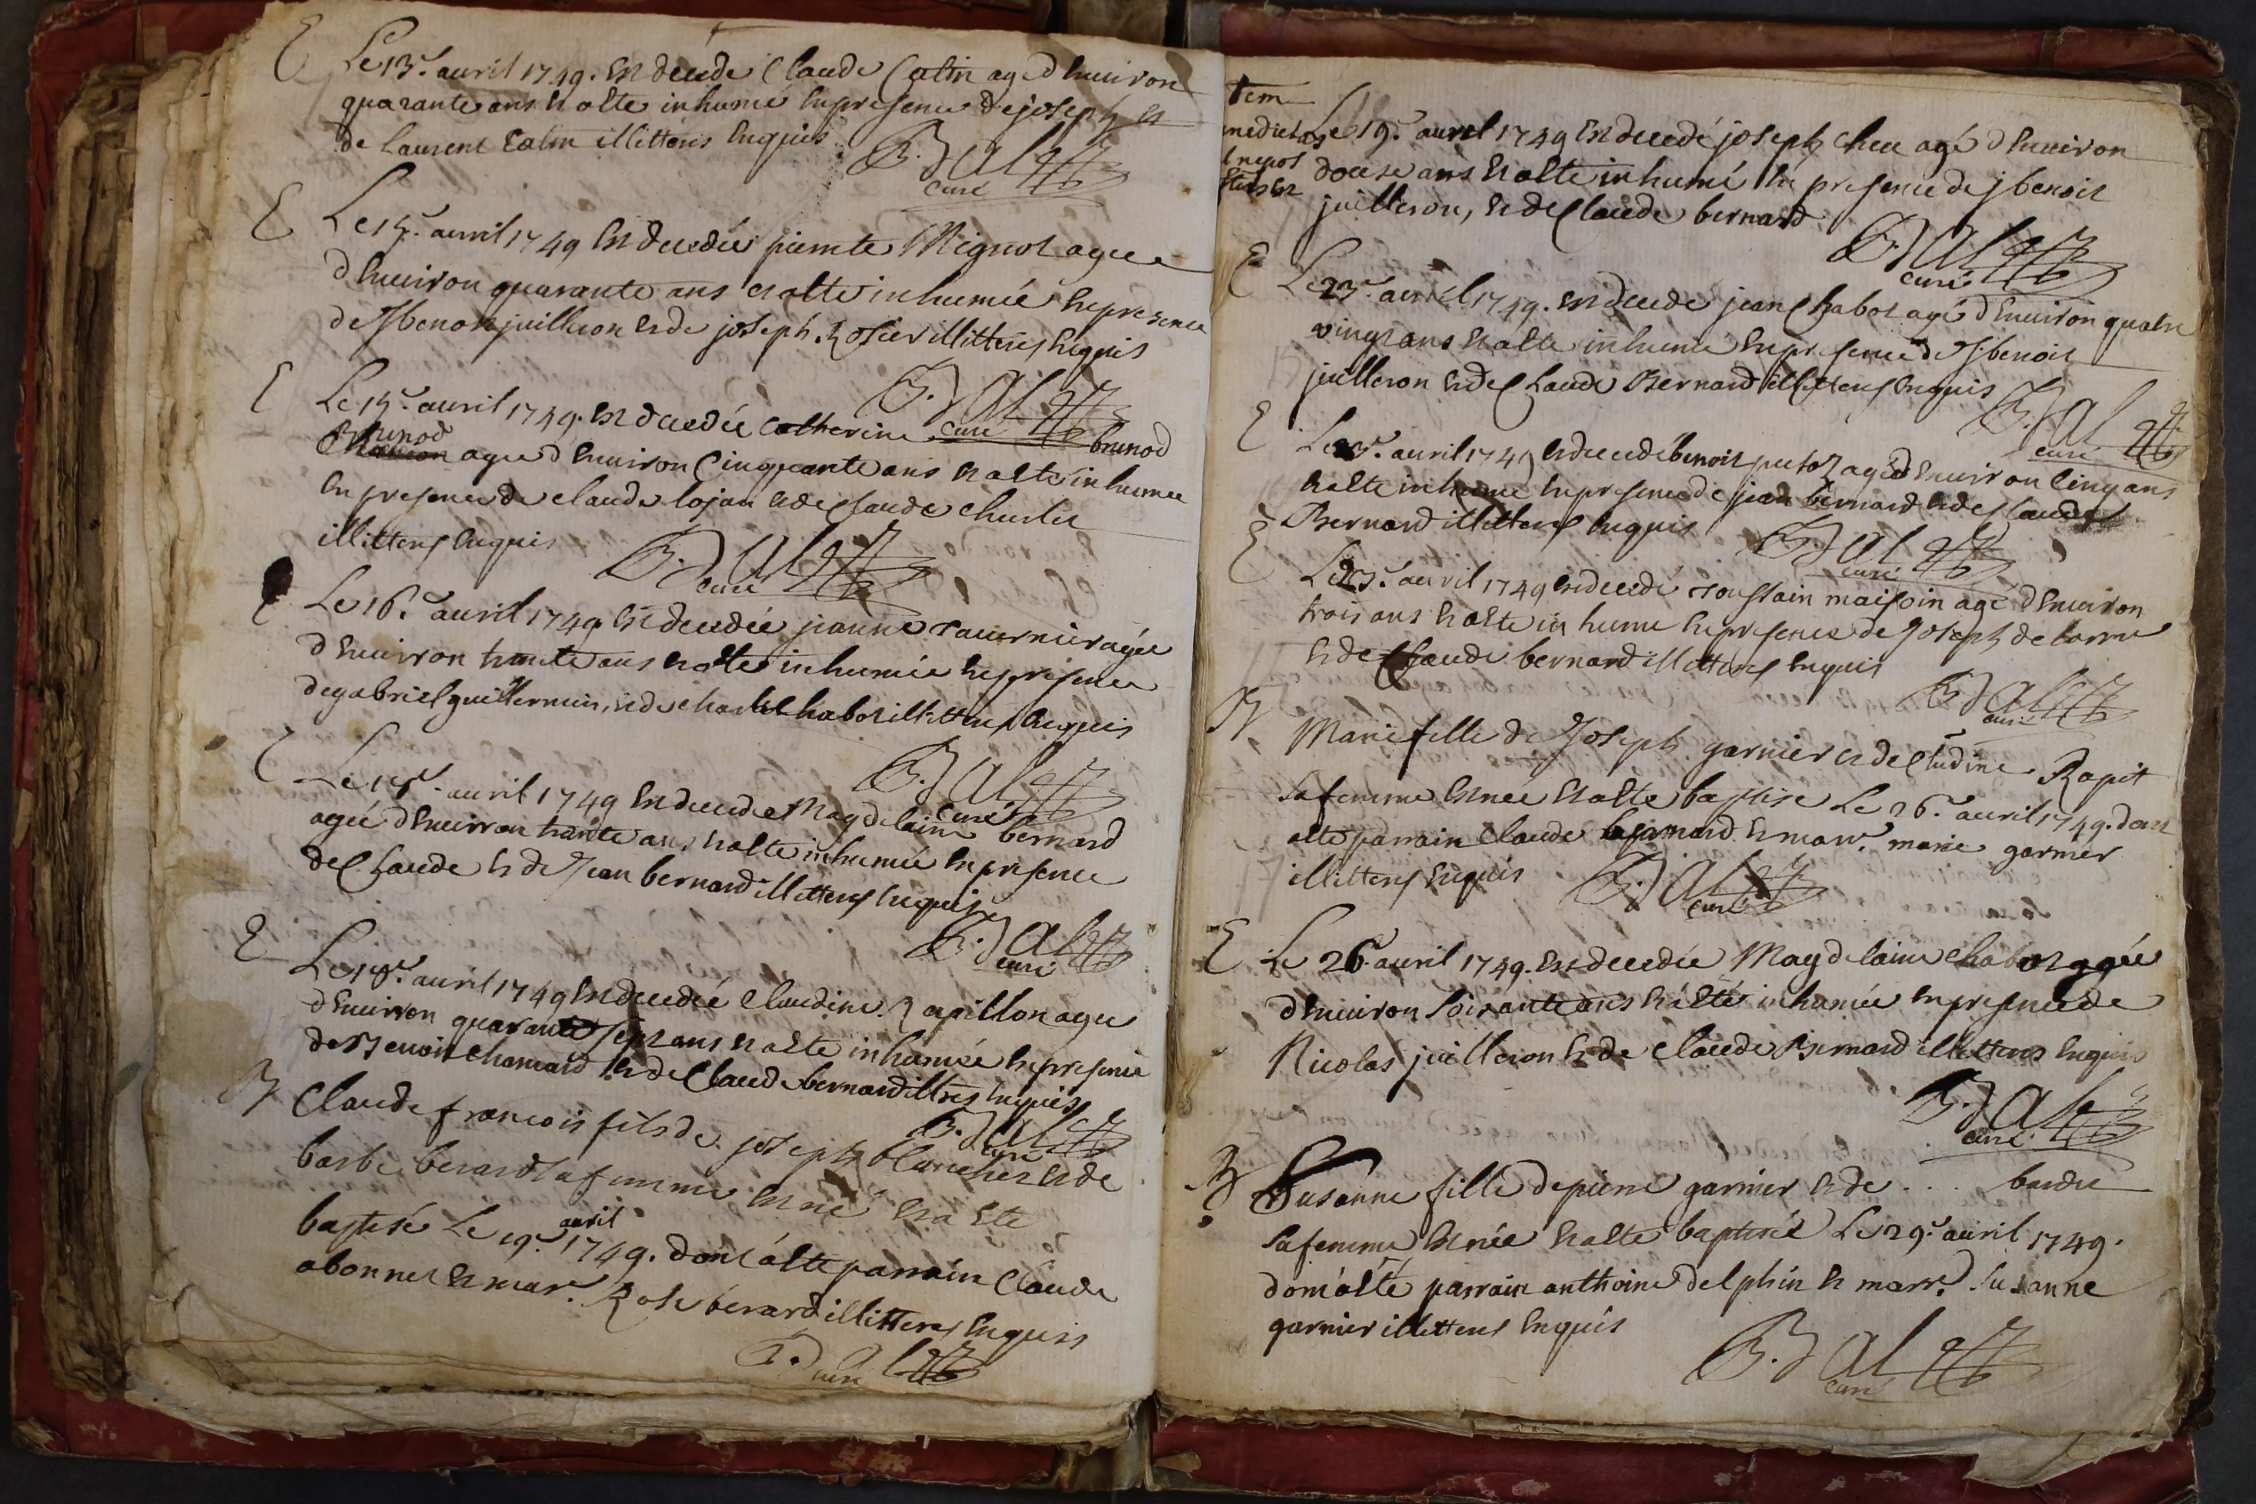 E Le 13.e auril 1749. est decedé Claude Catin agé d'enuiron
quarante ans et a este inhumé en presence de joseph et
de Laurent Catin illitterés enquis
B. Dal
curé
E Le 15.e auril 1749 est decedée pierrette Mignot agee
d'enuiron quarante ans et a este inhumée en presence
de J benoit juilleron et de joseph Rosier illitterés enquis
B. Dal
curé
E Le 15.e auril 1749. est decedée Catherine brunod
brunod
agée d'enuiron Cinquante ans et a esté inhumee
en presence de claude lojan et de Claude Charles
illitterés enquis
B. Dal
curé
E Le 16.e auril 1749 est decedée jeanne Tauernier agée
d'enuiron trente ans et a estee inhumée en presence
de gabriel guillermin, et de charle chabot illitterés enquis
B. Dal
curé
E Le 18.e auril 1749 est decedee Magdelaine bernard
agée d'enuiron trante ans et a este inhumée en presence
de Claude et de Jean bernard illitterés enquis
B. Dal
curé
E Le 18.e auril 1749 est decedée Claudine Rapillon agee
d'enuiron quarante sept ans et a este inhumée en presence
de Benoit Chamard et de Claude bernard illtres enquis
B. Dal
curé
B Claude francois fils de joseph blanchet et de
barbe berard sa femme est né et a Eté
auril
baptisé Le 19.e 1749. dont a été parrain Claude
abonnel et mar.e Rose bérard illitterés enquis
B. Dal
curé
tem
Le 19.e auril 1749 est decedé joseph chen agé d'enuiron
douse ans et a esté inhumé en presence de J benoit
juilleron, et de Claude bernard
B. Dal
curé
E Le 23.e auril 1749. est decede jean Chabot agé d'enuiron quatre
vingt ans et a esté inhumé en presence de J benoit
juilleron et de Claude Bernard illitterés enquis
B. Dal
curé
E Le 23.e auril 1749 est decedé benoit putoz agé d'enuiron Cinq ans
et a este inhumé en presence de jean bernard et de Claude
Bernard illitterés enquis
B. Dal
curé
E Le 23.e auril 1749 est decedé toussain maisoin agé d'enuiron
trois ans et a este inhumé en presence de Joseph de
et de Claude bernard illitterés enquis
B. Dal
curé
B Marie fille de Joseph garnier et de Cludine Rapit
sa femme est nee et a esté baptise Le 26.e auril 1749. dont
a été parrain Claude bernard et marr.e marie garnier
illitterés enquis
B. Dal
curé
E Le 26 auril 1749. est decedée Magdelaine chabot agée
d'enuiron soixante ans et a été inhumée en presence de
Nicolas juilleron et de Claude Bernard illitterés enquis
B. Dal
curé
B Susanne fille de pierre garnier et de ... bardes
sa femme est née et a esté baptisée Le 29.e auril 1749.
dont a été parrain anthoine delphin et marr.e Susanne
garnier illitterés enquis
B. Dal
curé